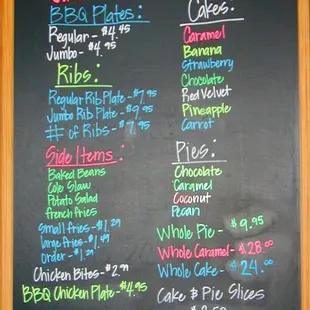 BBQ Plates:
Regular - $4.45
Jumbo - $4.95
Ribs:
Regular Rib Plate - $7.95
Jumbo Rib Plate - $9.95
# of Ribs - $7.95
Side Items:
Baked Beans
Cole Slaw
Potato Salad
french fries
Small fries - $1.29
large fries - $1.49
Order - $1.29
Chicken Bites - $2.99
BBQ Chicken Plate - $4.95
Cakes:
Caramel
Banana
Strawberry
Chocolate
Red Velvet
Pineapple
Carrot
Pies:
Chocolate
Caramel
Coconut
Pecan
Whole Pie - $9.95
Whole Caramel - $28.00
Whole Cake - $24.00
Cake & Pie Slices